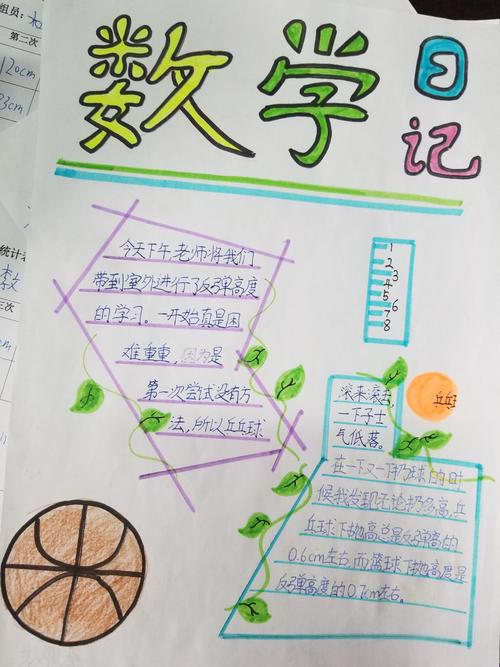 组员:
第二次
120cm
3cm
统计
数学
日
记
今天下午,老师将我们
带到室外进行了反弹高度
的学习。一开始真是困
难重重,因为是
第一次尝试没有方
法,所以乒乓球
1
2
3
3
4
5
6
7
8
滚来滚去,
一下子士
气低落。
乒乓
在一下又一下扔球的时
候我发现无论扔多高,乒
乓球下抛高总是反弹高的
0.6cm左右而篮球下抛高度是
反弹高度的0.7cm左右。